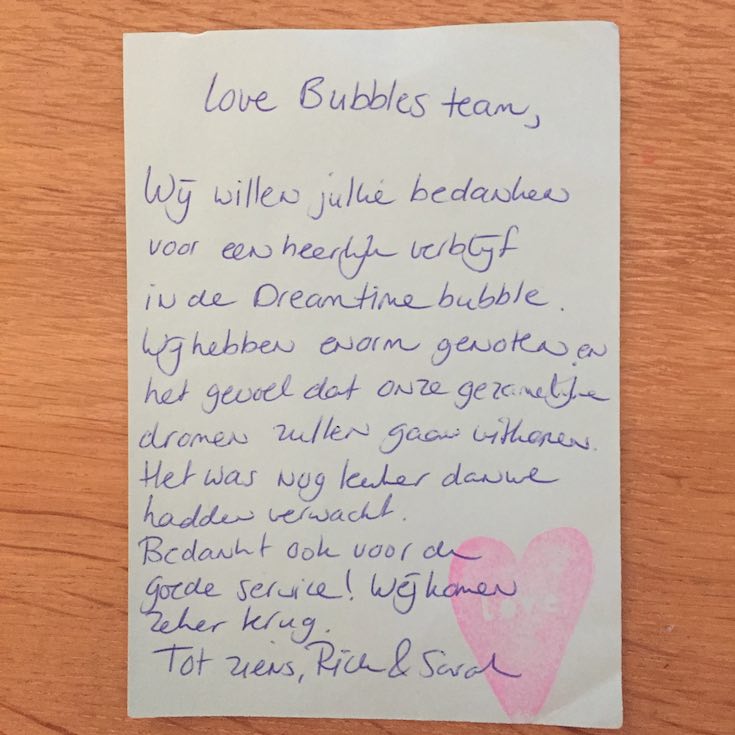 Love Bubbles team,
Wij willen jullie bedanken
voor een heerlijk verblijf
in de Dreamtime bubble.
Wij hebben enorm genoten en
het gevoel dat onze gezamelijke
dromen zullen gaan uitkomen.
Het was nog leuker dan we
hadden verwacht.
Bedankt ook voor de
goede service! Wij komen
zeker terug.
Tot ziens, Rick & Sarah
Love